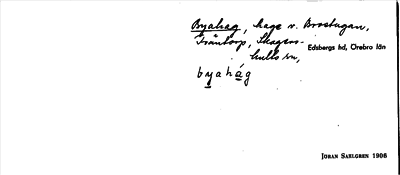 Byahag, hage v. Brostugan,
Träntorp, Skagers-
hults sn, Edsbergs hd, Örebro län
byahág
JOHAN SAHLGREN 1906